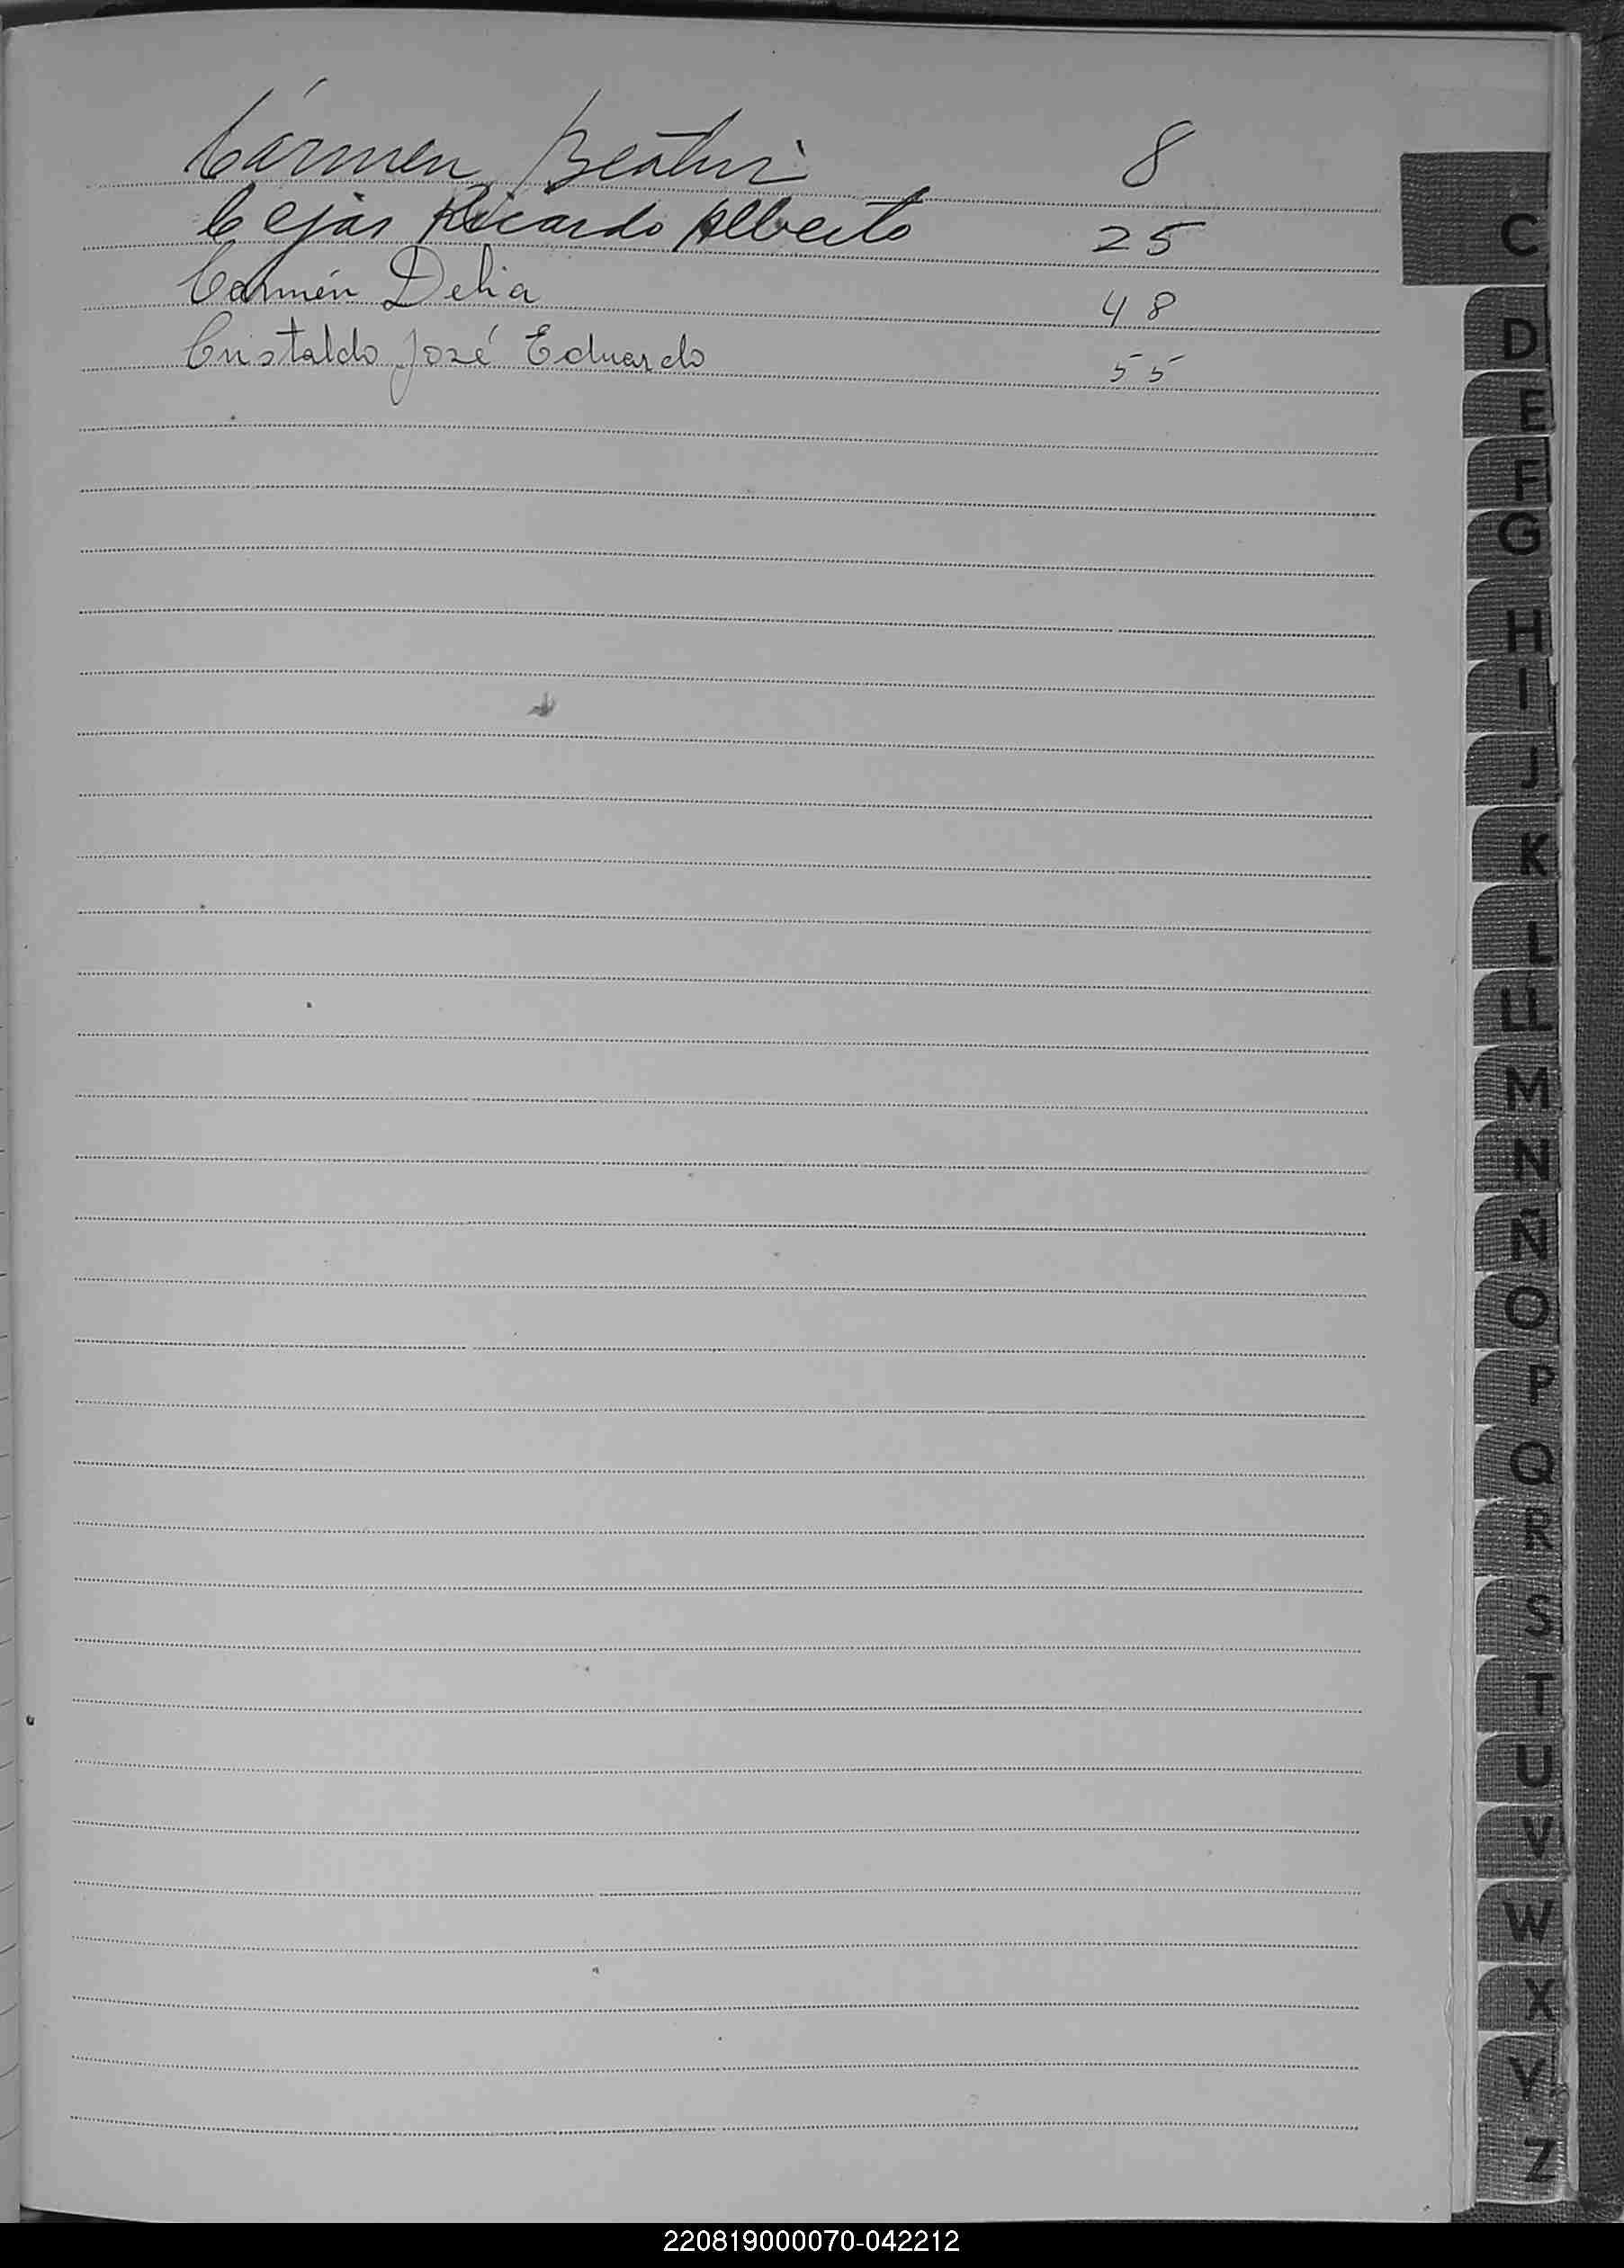 Cármen Beatriz 8
Cejas Ricardo Alberto 25
Carmen Delia 48
Cristaldo José Eduardo 55
C
D
E
F
G
H
I
J
K
L
LL
M
N
Ñ
O
P
Q
R
S
T
U
V
W
X
Y
Z
220819000070-042212